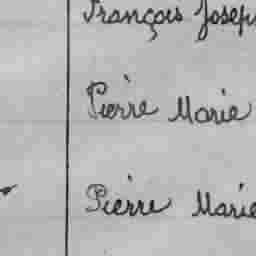 François Joseph
Pierre Marie
Pierre Marie